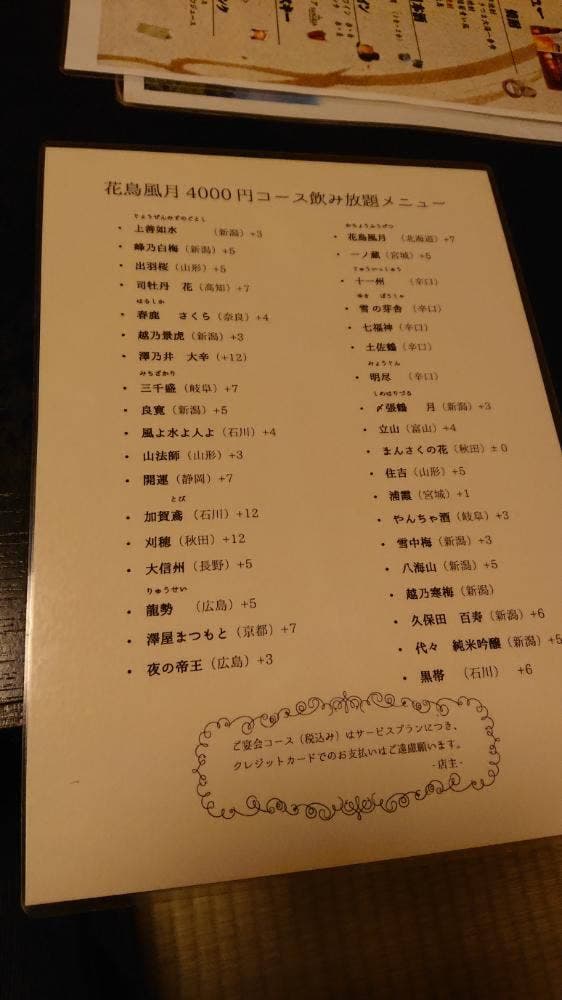 花鳥風月4000円コース飲み放題メニュー
じょうぜんみずのごとし
・上善如水 （新潟）+3
・峰乃白梅（新潟）+5
・出羽桜（山形）+5
・司牡丹 花（高知）+7
はるしか
・春鹿 さくら（奈良）+4
・越乃景虎（新潟）+3
・澤乃井 大辛（+12）
みちざかり
・三千盛（岐阜）+7
・良寛（新潟）+5
・風よ水よ人よ（石川）+4
・山法師（山形）+3
・開運（静岡）+7
とび
・加賀鳶（石川）+12
・刈穂（秋田）+12
・大信州（長野）+5
りゅうせい
・龍勢 （広島）+5
・澤屋まつもと（京都）+7
・夜の帝王（広島）+3
かちょうふうげつ
・花鳥風月 （北海道）+7
・一ノ蔵（宮城）+5
じゅういっしゅう
・十一州 （辛口）
ゆき ぼうしゃ
・雪の芽舎（辛口）
・七福神（辛口）
・土佐鶴（辛口）
みょうじん
・明尽 （辛口）
しめはりづる
・〆張鶴 月（新潟）+3
・立山（富山）+4
・まんさくの花（秋田）±0
・住吉（山形）+5
・浦霞（宮城）+1
・やんちゃ酒（岐阜）+3
・雪中梅（新潟）+3
・八海山（新潟）+5
・越乃寒梅（新潟）
・久保田 百寿（新潟）+6
・代々 純米吟醸（新潟）+5
・黒帯 （石川） +6
ご宴会コース（税込み）はサービスプランにつき、
クレジットカードでのお支払いはご遠慮願います。
-店主-